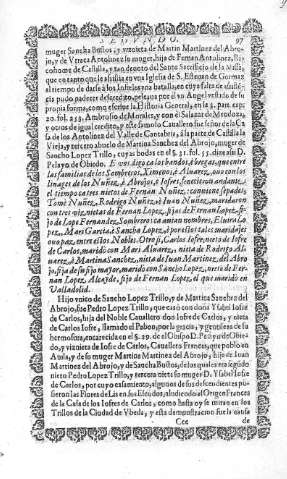 SEGVNDO. 97
muger Sancha Bustos, y vizniera de Martin Martinez del Abro-
jo, y de Vereta Antolinez su muger, hija de Fernan Antolinez, Ri-
cohome de Castilla, y tan devoto del Santo Sacrificio de la Missa,
que en tanto que la assistia en vna Iglesia de S. Estevan de Gormaz
al tiempo de darse à los Infieles vna batalla, en cuya falta de assis-
cia pudo padecer descredito, peleava por èl vn Angel vestido de su
propia forma, como escrive la Historia General, en la 3. part. cap.
20. fol. 255. Ambrosio de Morales, y con èl Salazar de Mendoza,
y otros de igual credito, y este famoso Cavallero fue señor de la Ca-
sa de los Antolinez del Valle de Cantabria, à la parte de Castilla la
Vieja, y tercero abuelo de Martina Sanchez del Abrojo, muger de
Sancho Lopez Trillo, cuyas bodas en el §. 31. fol. 55. dize assi D.
Pelayo de Obiedo. E vos digo
las familias de los Sombreros, Ximenez, è Alvarez, que con los
linages de los Nuñez, è Abrojos, è Iofres,
el tiempo ca tres nietos de Fernan Nuñez
Tomè Nuñez, Rodrigo Nuñez, è Iuan Nuñez, maridaron
con tres nietas de Fernan Lopez, fijas de Fernan Lopez, fi-
jo de Fernan Lopez, è Sombreros, Elvira Lopez
Lopez, Mari Garcia è Sancha Lopez, è por estos tales maridajes
ovo paz entre estos Nobles. Otrosi, Carlos Iofre, nieto de Iofre
de Carlos, maridò con Mari Alvarez, nieta de Rodrigo Al-
varez, è Martina Sanchez, nieta de Iuan Martinez, del Abro-
jo, fija de su fijo mayor, maridò con Sancho Lopez, nieto de Fer-
nan Lopez, Alcajde, fijo de Fernan Lopez, el que maridò en
Valladolid.
Hijo vnico de Sancho Lopez Trillo, y de Martina Sanchez del
Abrojo, fue Pedro Lopez Trillo, que casò con doña Ysabel Iofre
de Carlos, hija del Noble Cavallero don Iofre de Carlos, y nieta
de Carlos Iofre, llamado el Pabon, por la gracia, y gentileza de su
hermosura, encarecida en el §. 29. de el Obispo D. Pelayo de Obie-
do, y vizniera de Iofre de Carlos, Cavallero Frances, que poblò en
Avila, y de su muger Martina Martinez del Abrojo, hija de Iuan
Martinez del Abrojo, y de Sancha Bustos, de los quales era segundo
nieto Pedro Lopez Trillo, y tercero nieto su muger D. Ysabel Iofre
de Carlos, por cuyo casamiento, algunos de sus descendientes pu-
sieron las Flores de Lis en sus Escudos, aludiendo al Origen Frances
de la Casa de los Iofres de Carlos, como hasta oy se miran en los
Trillos de la Ciudad de Vbeda, y esta demostracion fue la causa
Ccc de